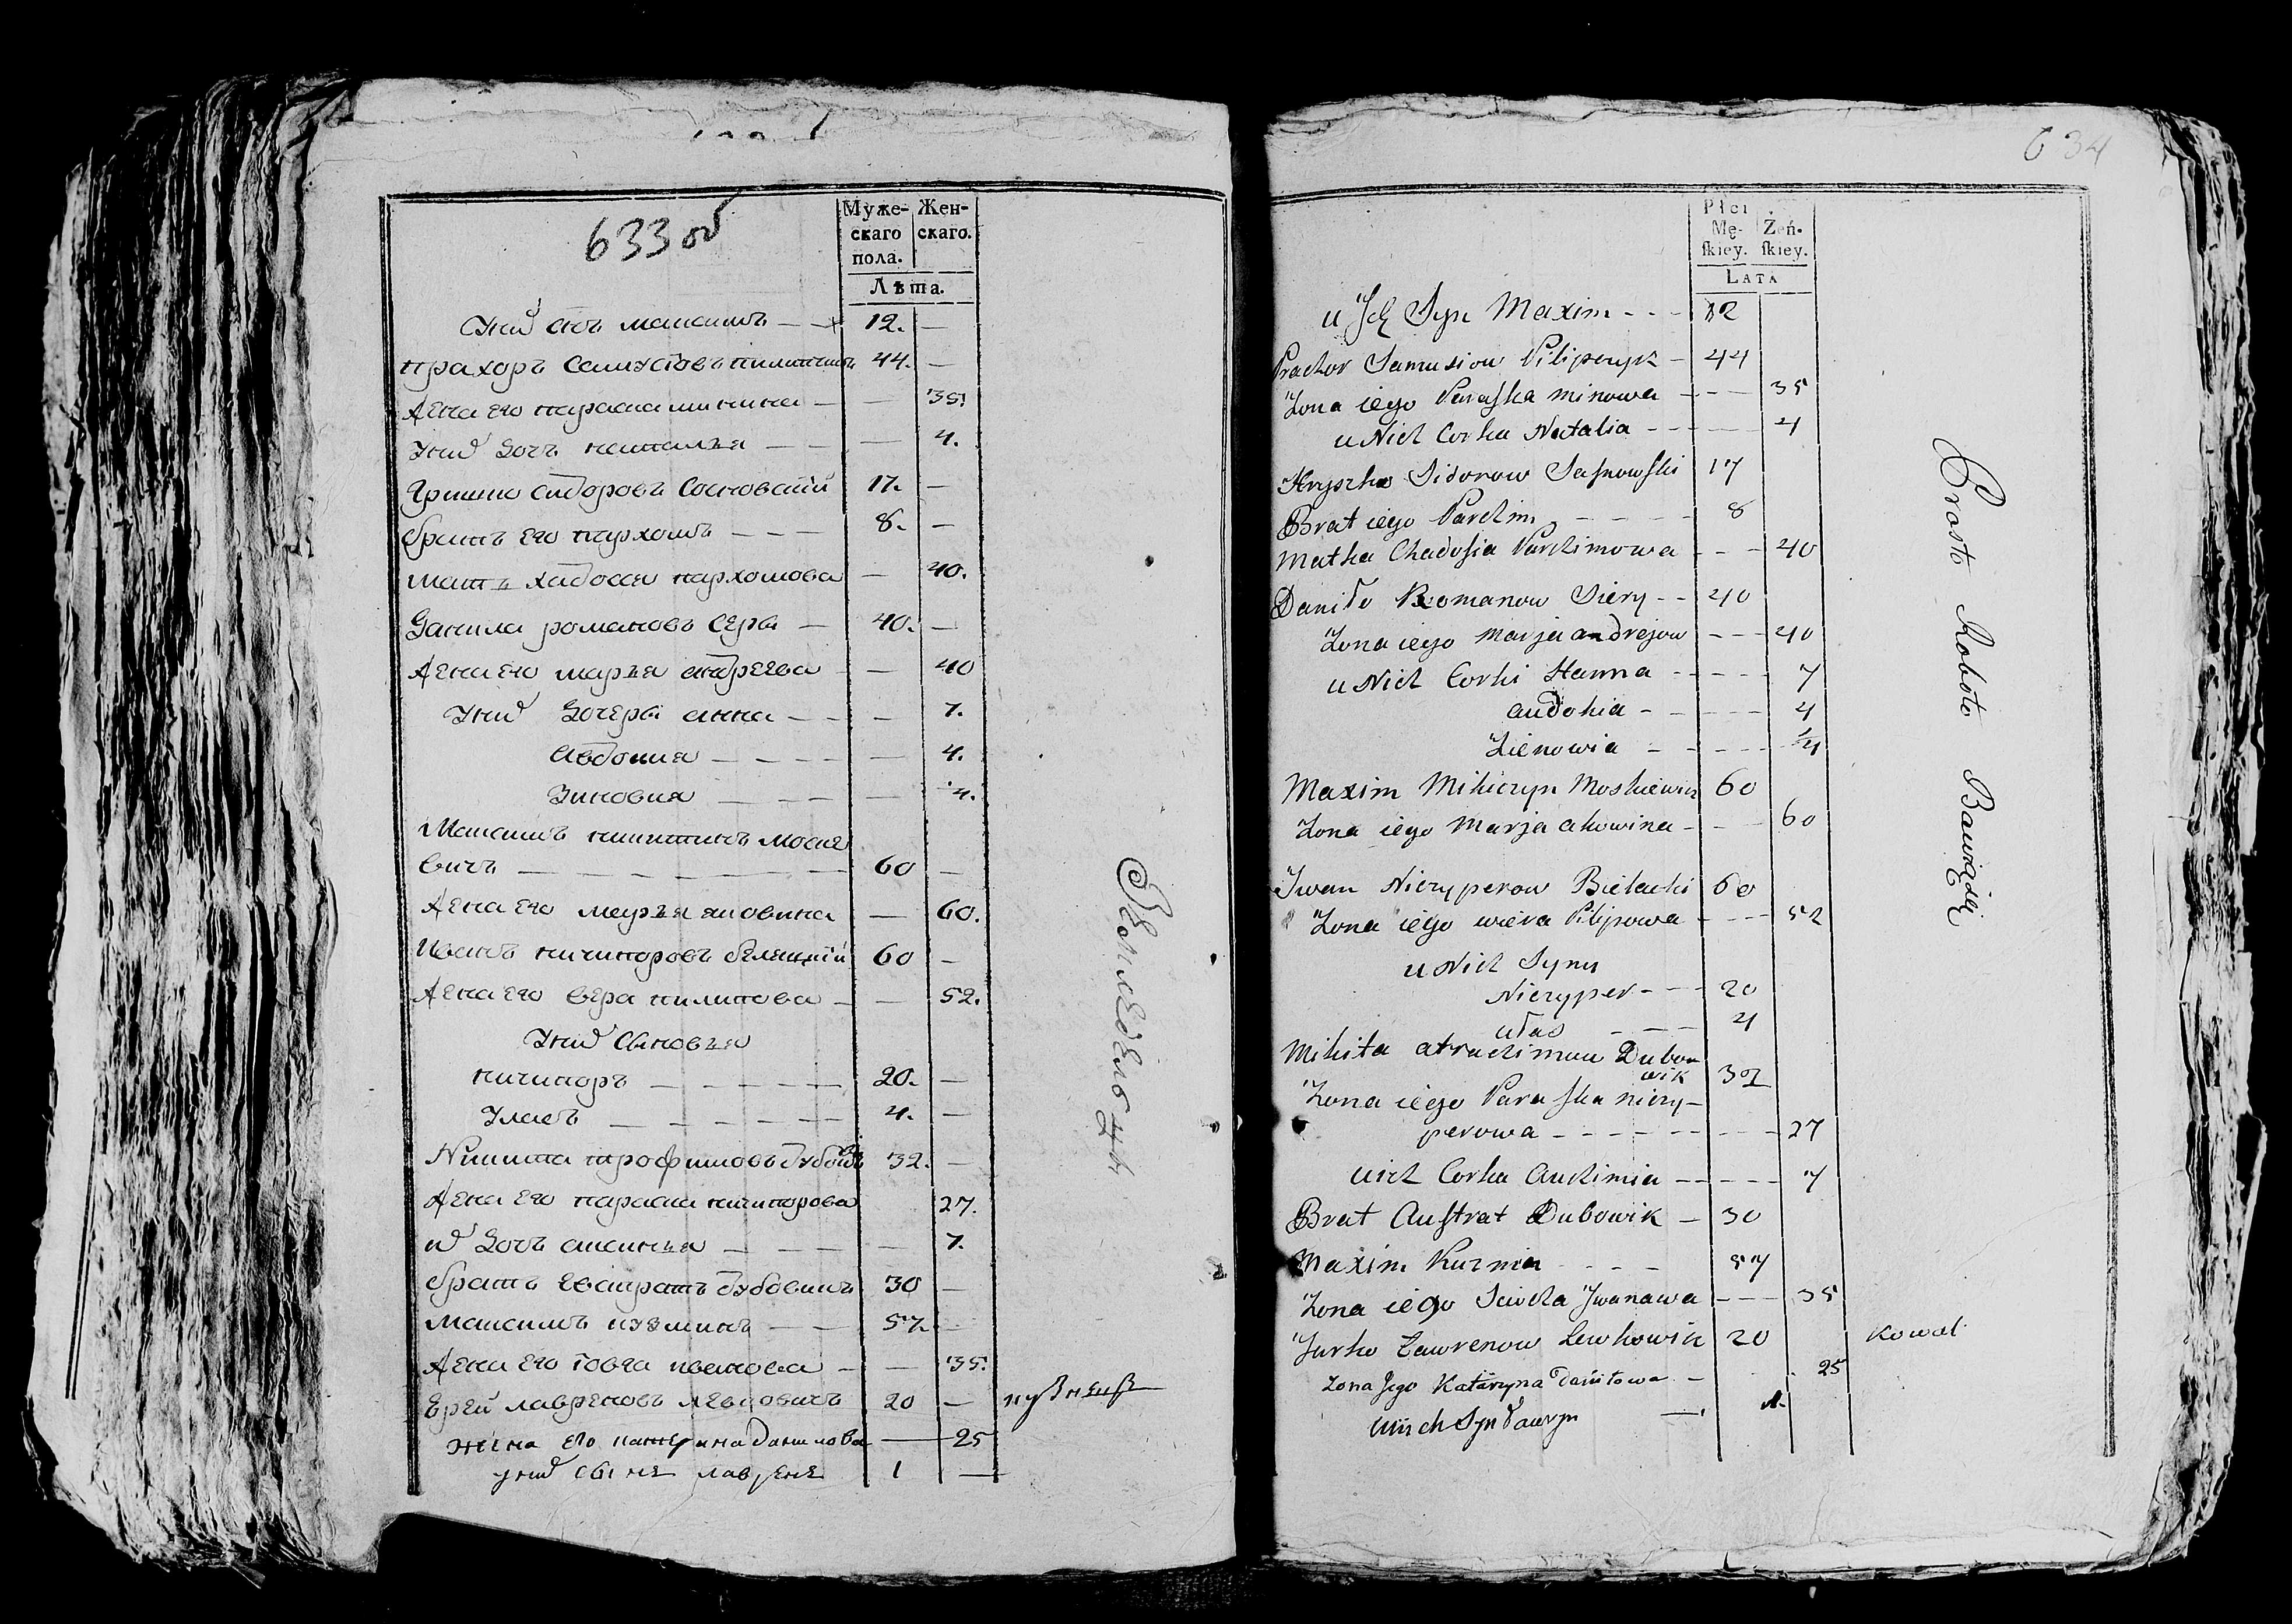 633 об
Муже- Жен-
скаго скаго.
пола.
Лѣта.
У них сын максимъ — 12. —
прахоръ самусіовъ пилипчикъ 44. —
жена его параска минина — — 35.
У них дочь наталья — — 4.
Гришко сидоровъ Сосновский 17. —
братъ его пархомъ — — — 8. —
мать хадосья пархомова — 40.
Данила романовъ Серы — 40. —
жена его марья андреева — 40
У них дочери анна — — — 7.
Авдокия — — — — — 4.
Зиновия — — — — 1/4.
Максимъ никитинъ Моске
вичъ — — — — — — 60 —
жена его марья яковина — 60.
Иванъ ничипоровъ белецкий 60 —
жена его вера пилипова — — 52.
У них Сыновья
ничипоръ — — — — — 20. —
Уласъ — — — — — 4. —
Никита трофимовъ дубовик 32. —
жена его параска ничипорова 27.
их дочь аксинья — — — — 7.
братъ Евстратъ дубовикъ 30 —
Максимъ кузминъ — — 57. —
жена его Іовга иванова — — 35.
Ерей лавреновъ левковичъ 20 — кузнецъ
жена его катерина данилова — 25
у них сынъ лавренъ 1 —
Земледельцы
634
Płci
Mę- Żeń-
ſkiey. ſkiey.
LATA
u Ich Syn Maxim - - - 12
Prachor Samusiow Pilipczyk - 44
Zona iego Paraſka minowa - - - 35
u Nich Corka Natalia - - - - - 4
Hryszko Sidorow Saſnowſki 17
Brat iego Parchim - - - - 8
Matka Chadoſia Parchimowa - - - 40
Daniło Romanow Siery - - 40
Zona iego Marja andrejow - - - 40
u Nich Corki Hanna - - - - - 7
audokia - - - - - - 4
Zienowia - - - - - 1/4
Maxim Mikiczyn Moskiewicz 60
Zona iego Marja akowina - - - 60
Iwan Niczyperow Bielacki 60
Zona iego wiera Pilipowa - - - - 52
u Nich Syny
Niczyper - - - 20
ułas - - - 4
Mikita atrachimow Dubow
wik 32
Zona iego Paraſka niczy-
perowa - - - - - - - - - 27
uich Corka Auchimia - - - - - 7
Brat Auſtrat Dubowik - 30
Maxim Kuzmin - - - - 57
Zona iego Jewcha Iwanawa - - - 35
Jurko Ławrenow Lewkowicz 20 Kowal
Zona Jego Kataryna Daniłowa - 25
Unich Syn Ławryn — 1.
Prosto Roboto Bawiąsię